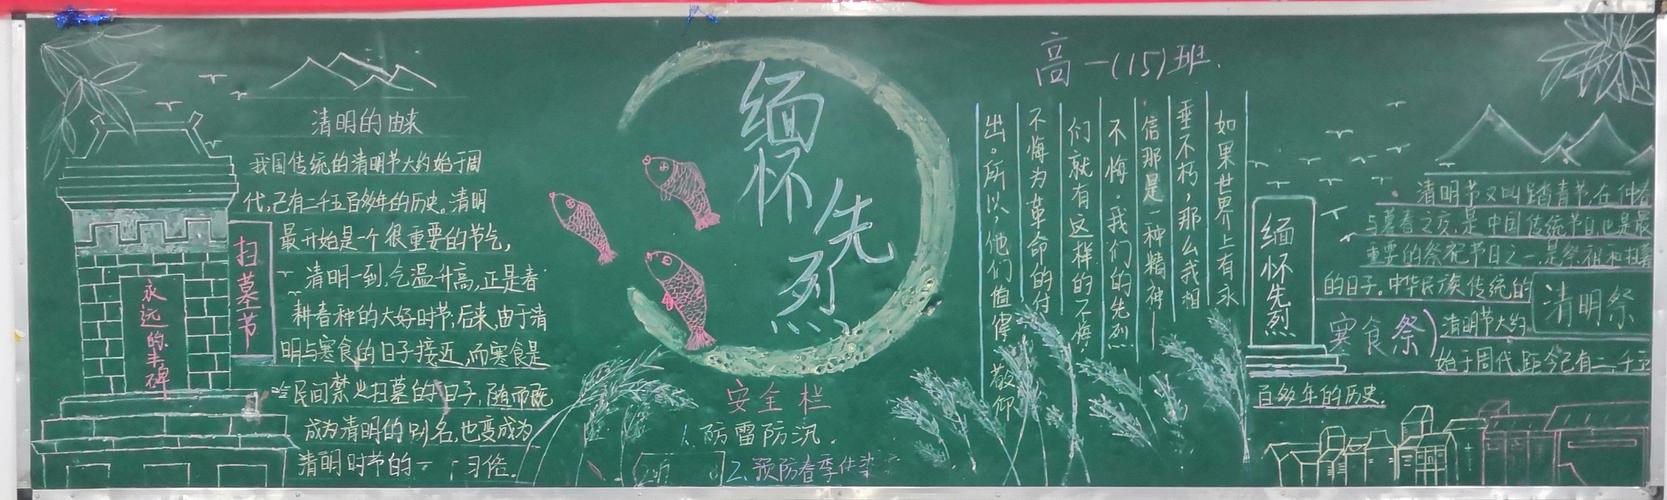 清明的由来
我国传统的清明节大约始于周
代,已有二千五百多年的历史。清明
最开始是一个很重要的节气,
清明一到,气温升高,正是春
耕春种的大好时节,后来,由于清
明与寒食的日子接近,而寒食是
民间禁火扫墓的日子,随而既
成为清明的别名,也变成为
清明时节的一 习俗。
扫墓节
永远的丰碑
缅怀
先烈
安全栏
1.防雷防汛.
2.预防春季传染
高一(15)班.
如果世界上有永
垂不朽,那么我相
信那是一种精神—
不悔.我们的先烈
们就有这样的不悔,
不悔为革命的付
出。所以,他们值得敬仰
缅怀先烈
清明节又叫踏青节,在仲春
与暮春之交,是中国传统节日,也是最
重要的祭祀节日之一,是祭祖和扫墓
的日子.中华民族传统的
清明祭
寒食祭
清明节大约
始于周代,距今已有二千五
百多年的历史.